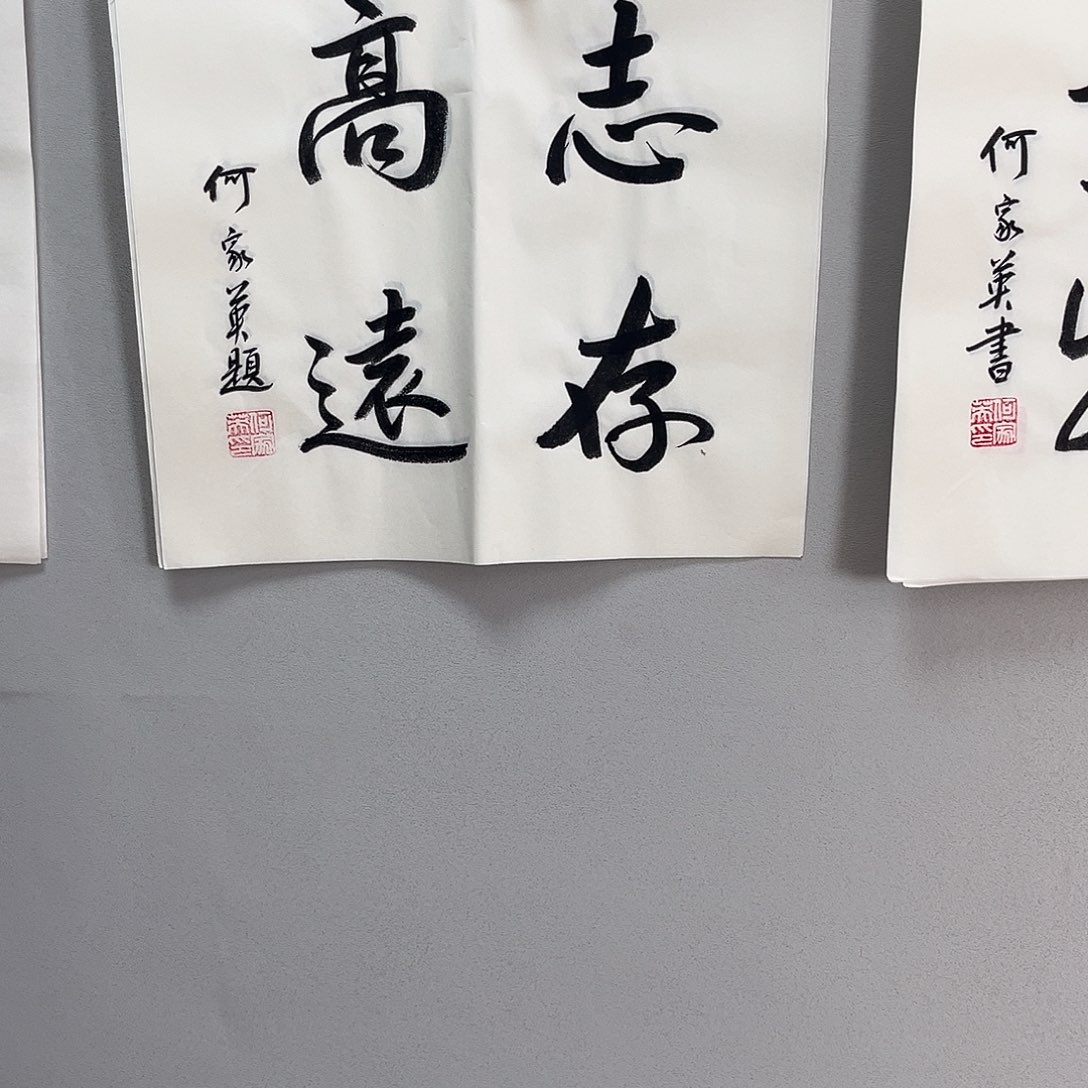 志存
高遠
何家英題
何家英印
何家英書
何家英印